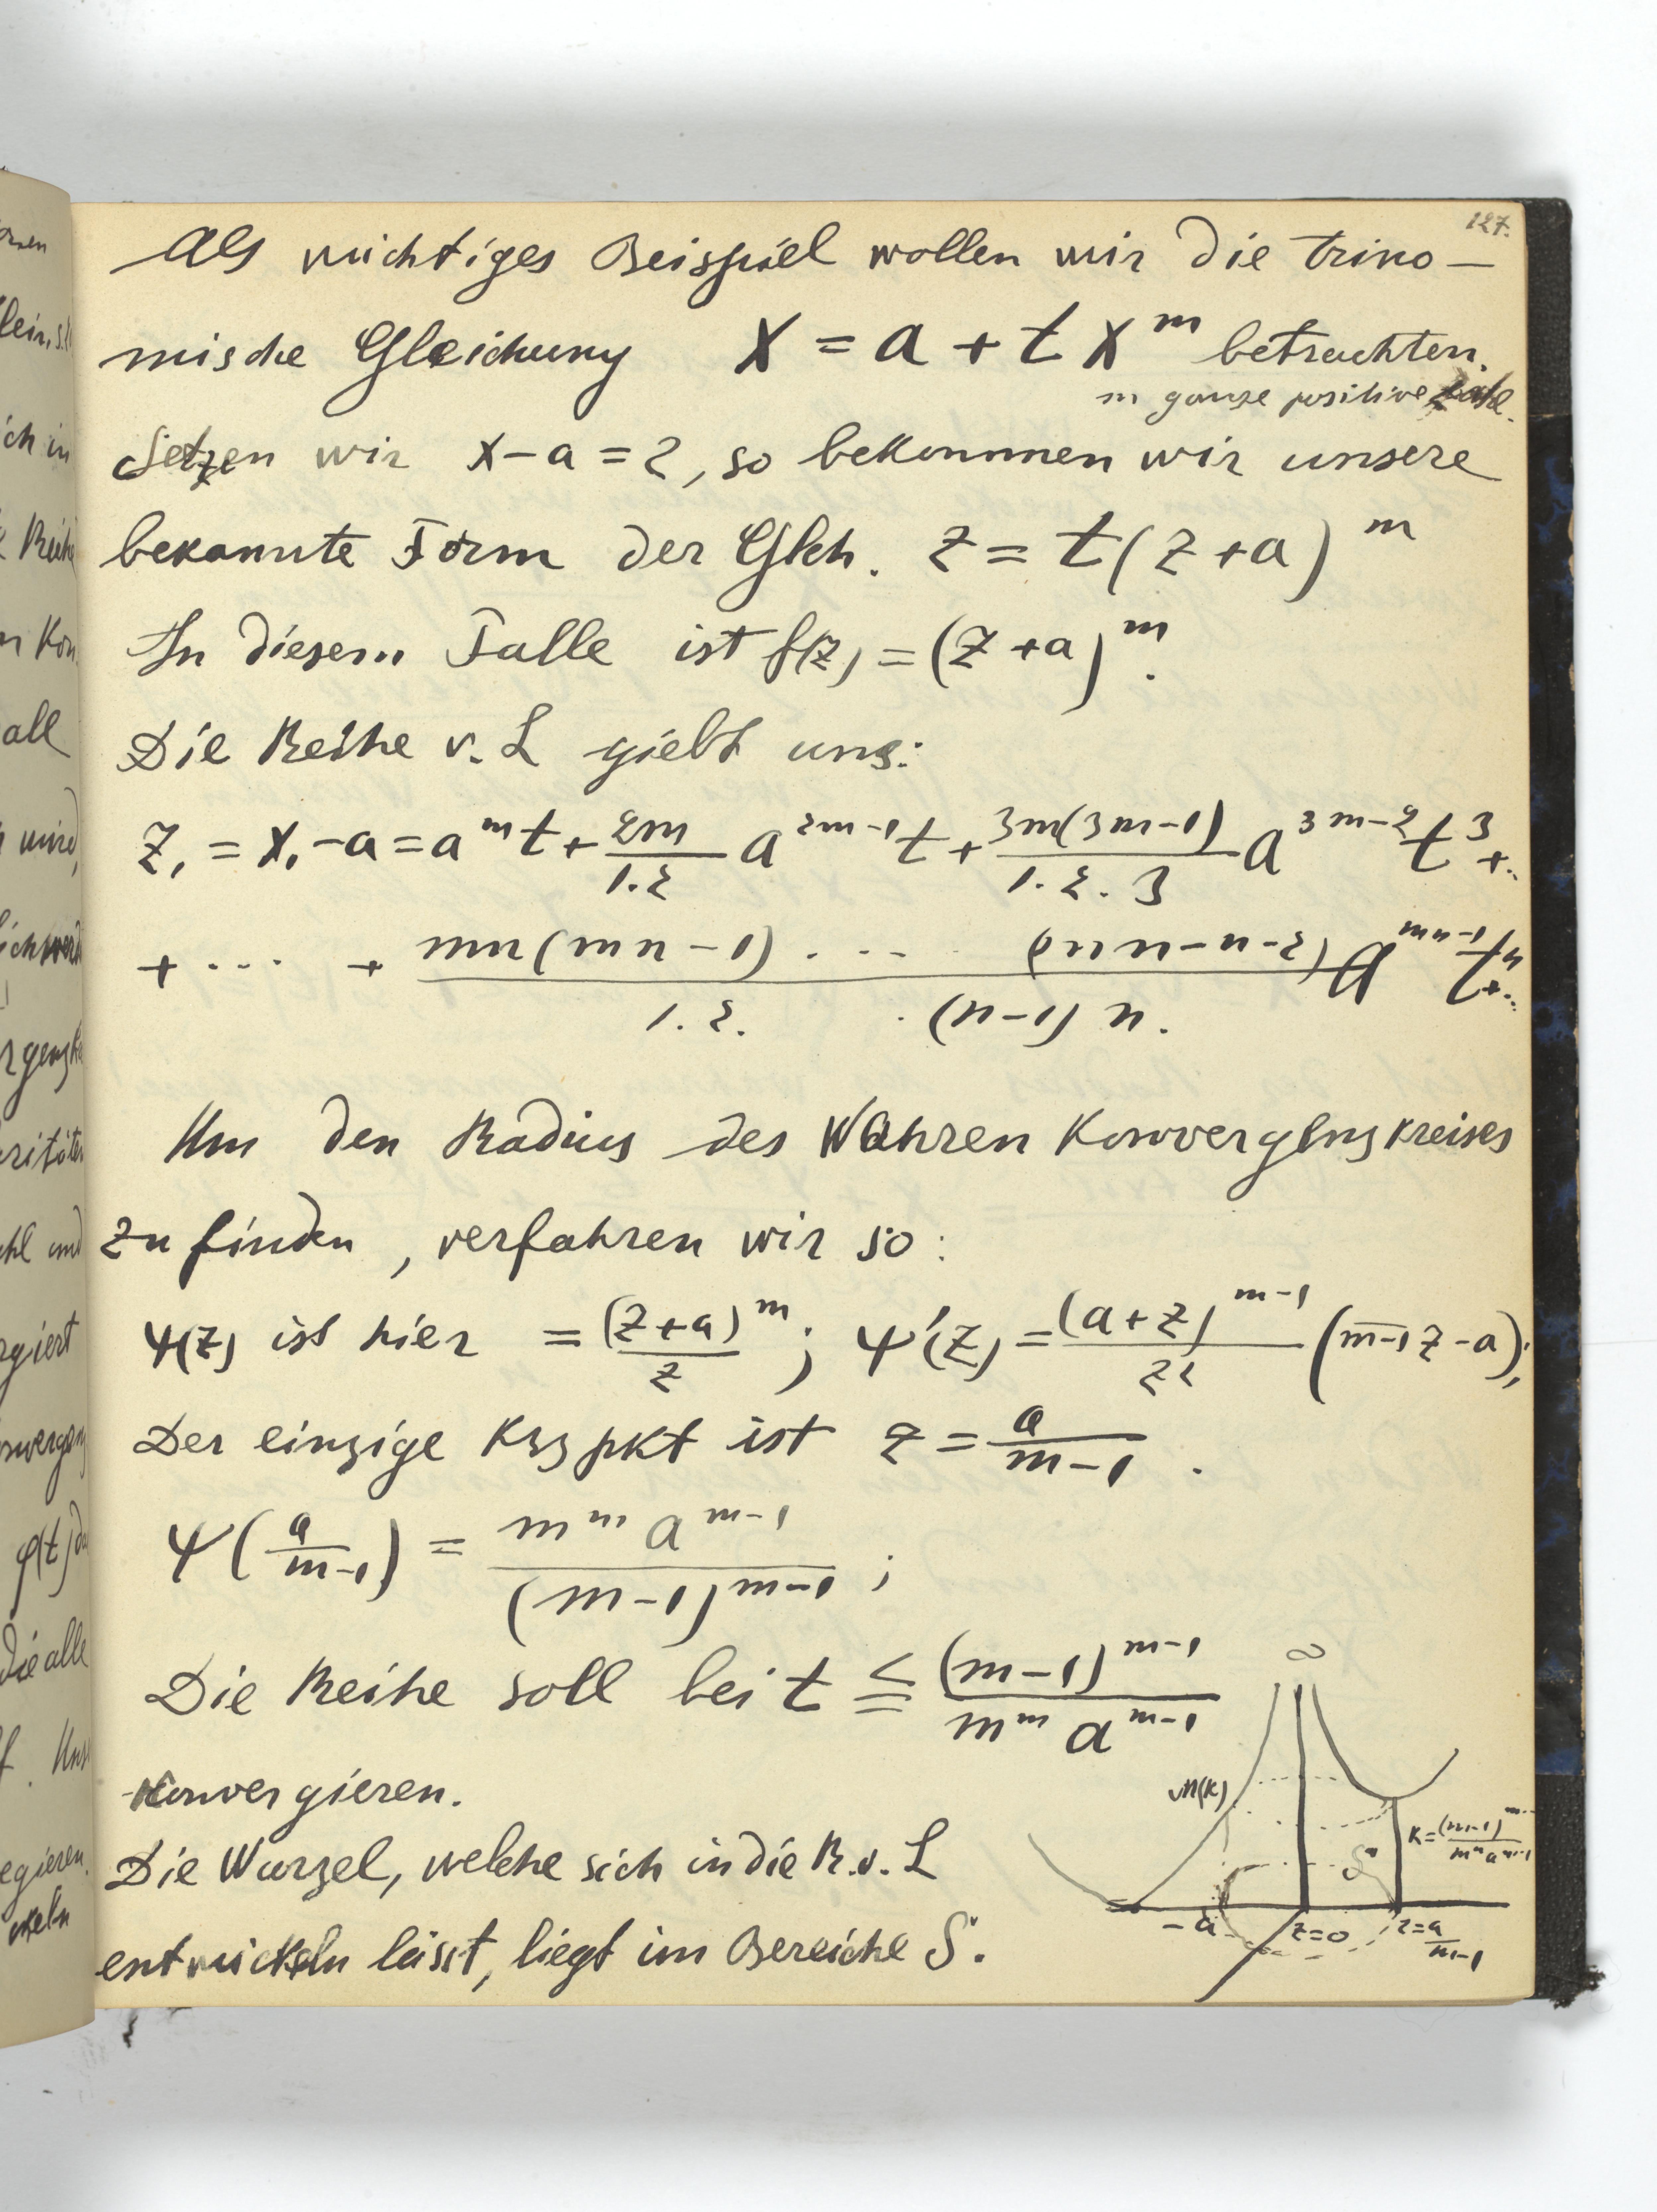 127.
Als wichtiges Beispiel wollen wir die trino–
mische Gleichung x = a + t x^m betrachten.
m ganze positive Zahl.
Setzen wir x – a = z, so bekommen wir unsere
bekannte Form der Glch. z = t(z + a)^m
In diesem Falle ist f(z) = (z + a)^m.
Die Reihe v. L giebt uns:
z₁ = x₁ – a = a^m t + 2m/1.2 a^{2m-1} t + 3m(3m-1)/1.2.3 a^{3m-2} t^3 + ..
+ ... + mn(mn-1) . ... (mn-n-2)/1.2. . (n-1) n. a^{mn-1} t^n + ..
Um den Radius des Wahren Konvergenzkreises
zu finden, verfahren wir so:
ψ(z) ist hier = (z+a)^m/z ; ψ'(z) = (a+z)^{m-1}/z² (m-1 z – a);
Der einzige Krzpkt ist z = a/m-1 .
ψ(a/m-1) = m^m a^{m-1}/(m-1)^{m-1} ;
Die Reihe soll bei t ≦ (m-1)^{m-1}/m^m a^{m-1}
konvergieren.
Die Wurzel, welche sich in die R. v. L
entwickeln lässt, liegt im Bereiche S.
∞
M(K)
K = (m-1)^{m-1}/m^m a^{m-1}
S
– a
z=0
z = a/m-1